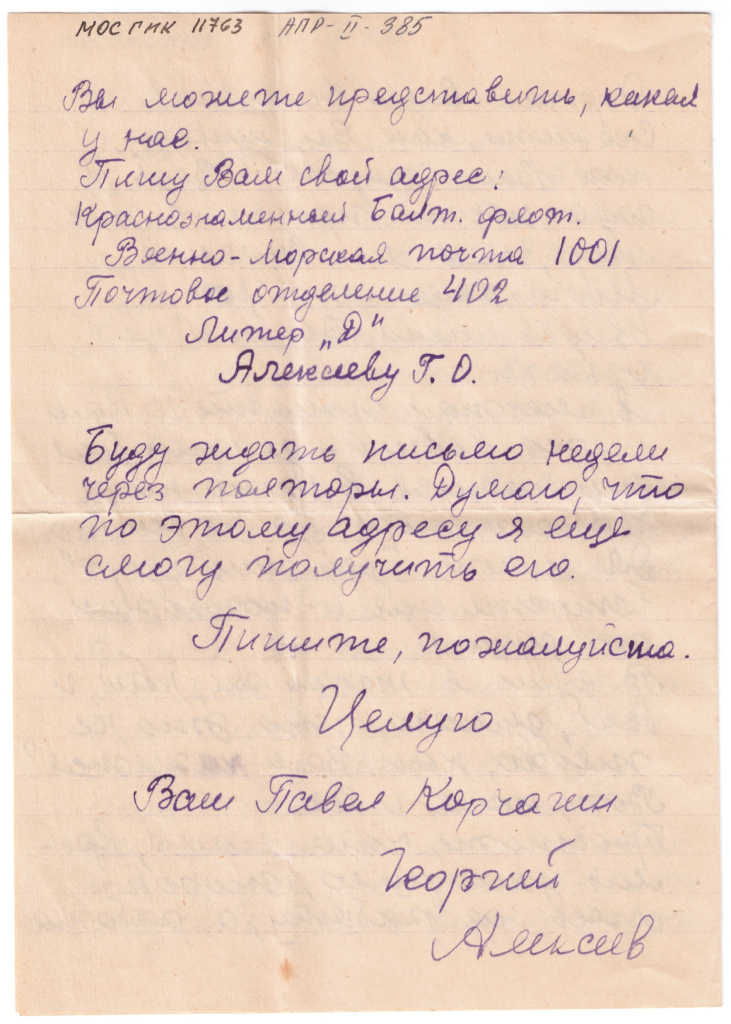 МОСГИК 11763 АПР-II-385
Вы можете представить, какая
у нас.
Пишу Вам свой адрес:
Краснознаменный Балт. флот.
Военно-Морская почта 1001
Почтовое отделение 402
Литер „Д"
Алексееву Г. О.
Буду ждать письмо недели
через полторы. Думаю, что
по этому адресу я еще
смогу получить его.
Пишите, пожалуйста.
Целую
Ваш Павел Корчагин
Георгий
Алексеев